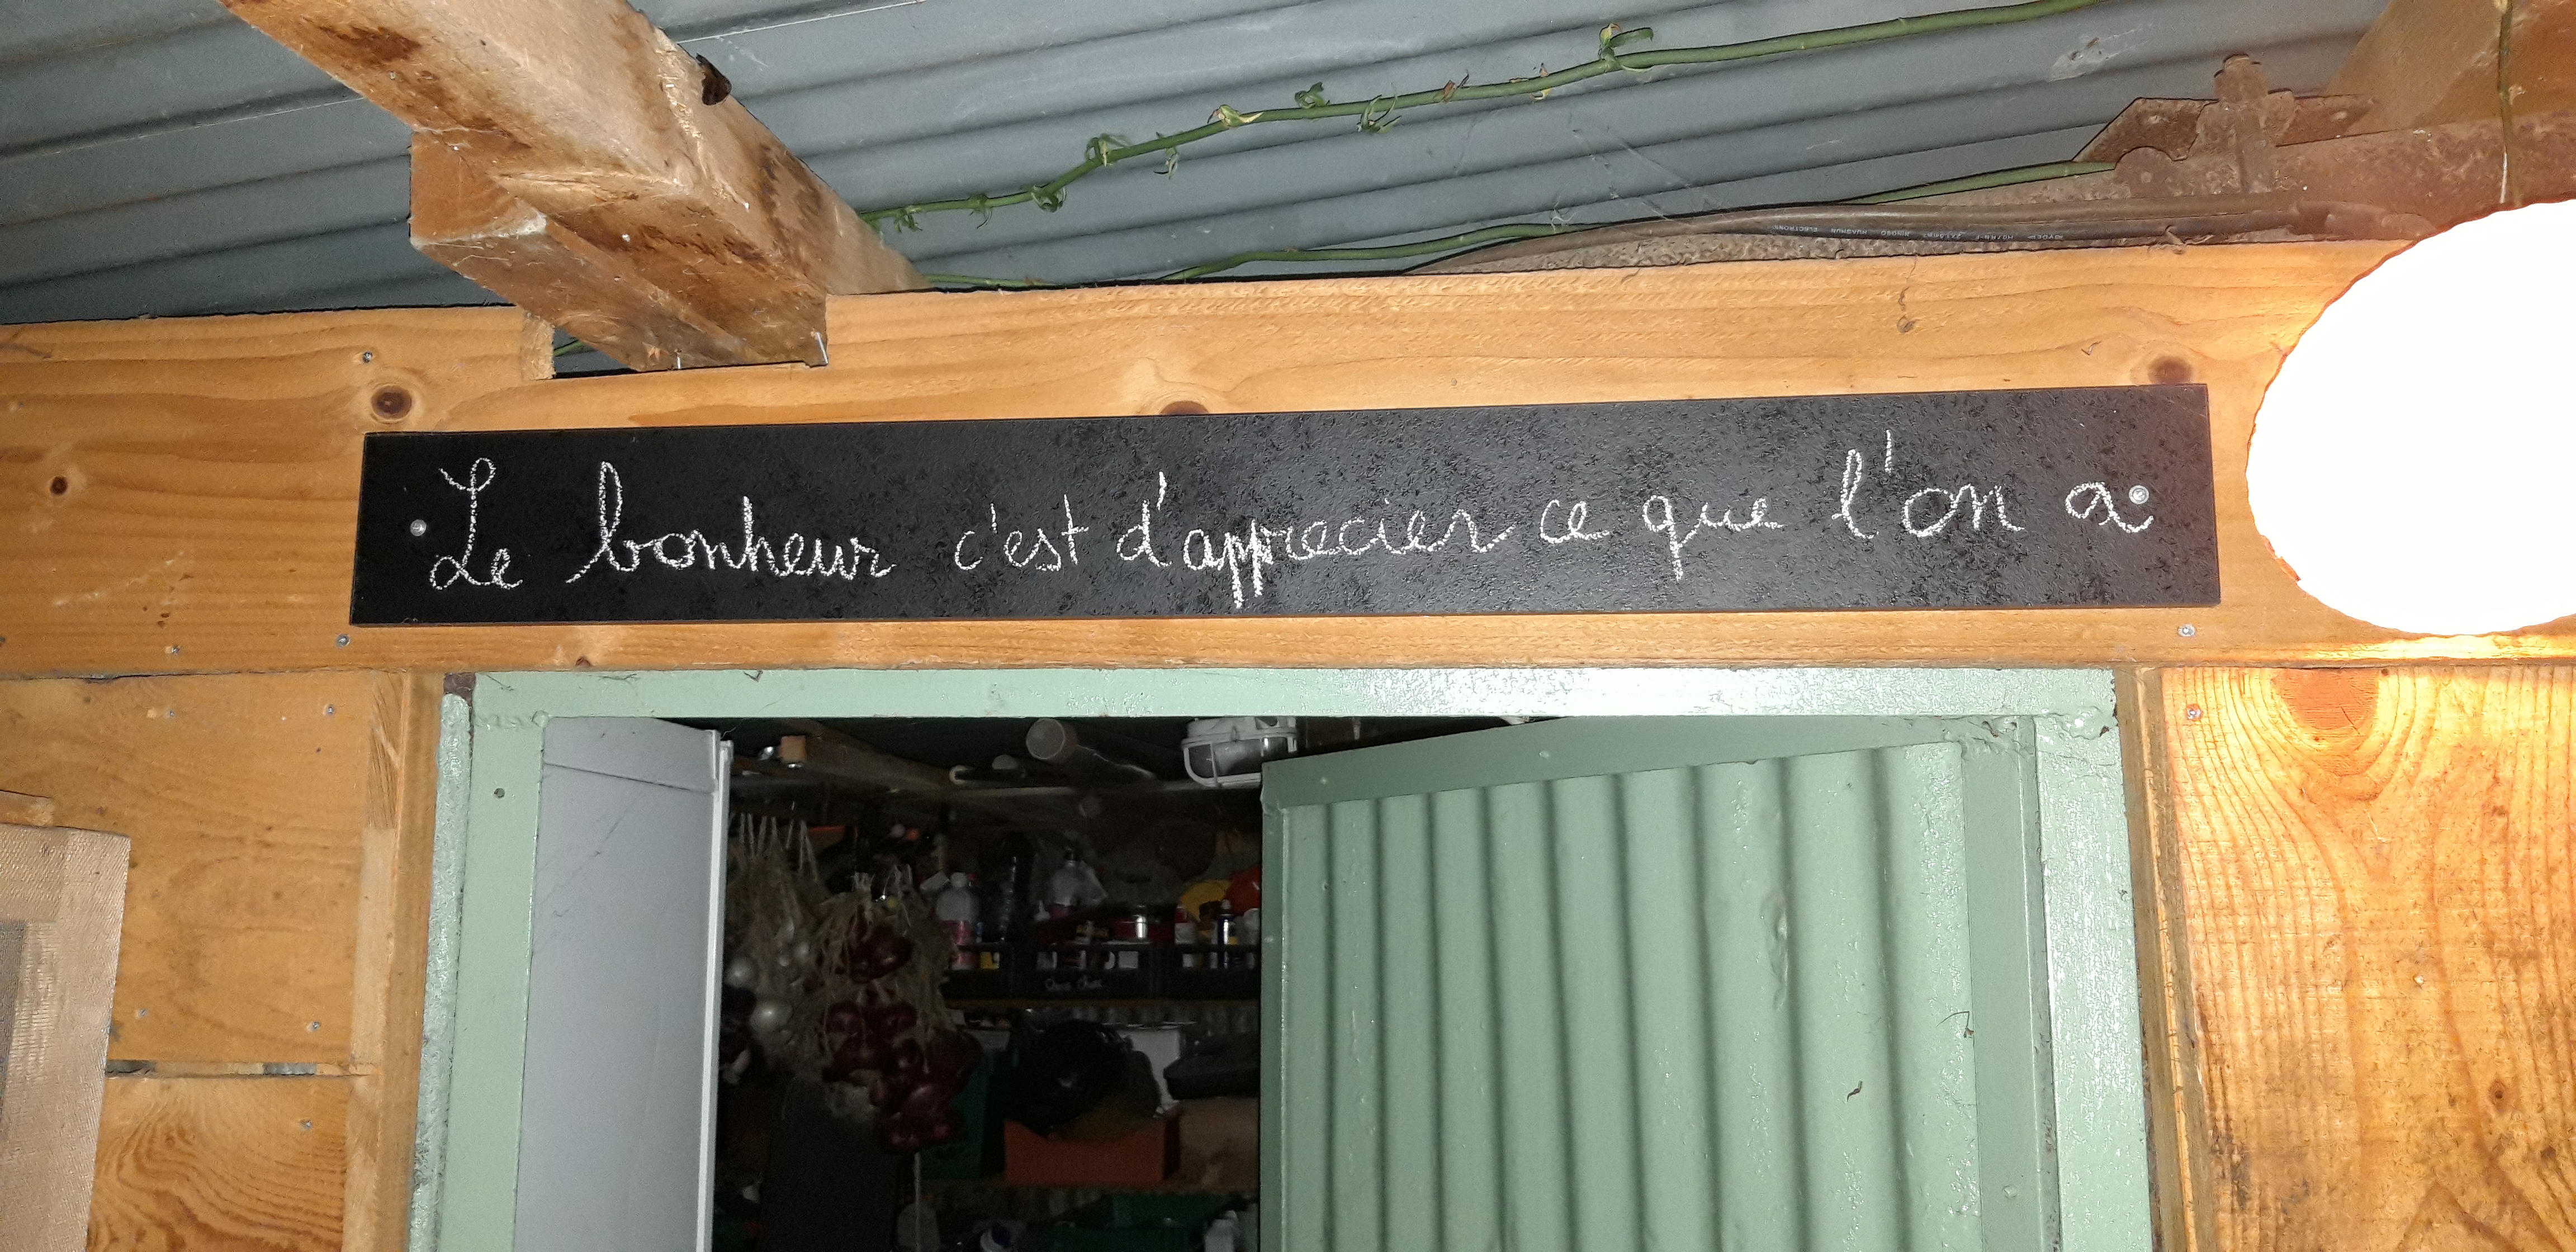 Le bonheur c'est d'apprecier ce que l'on a